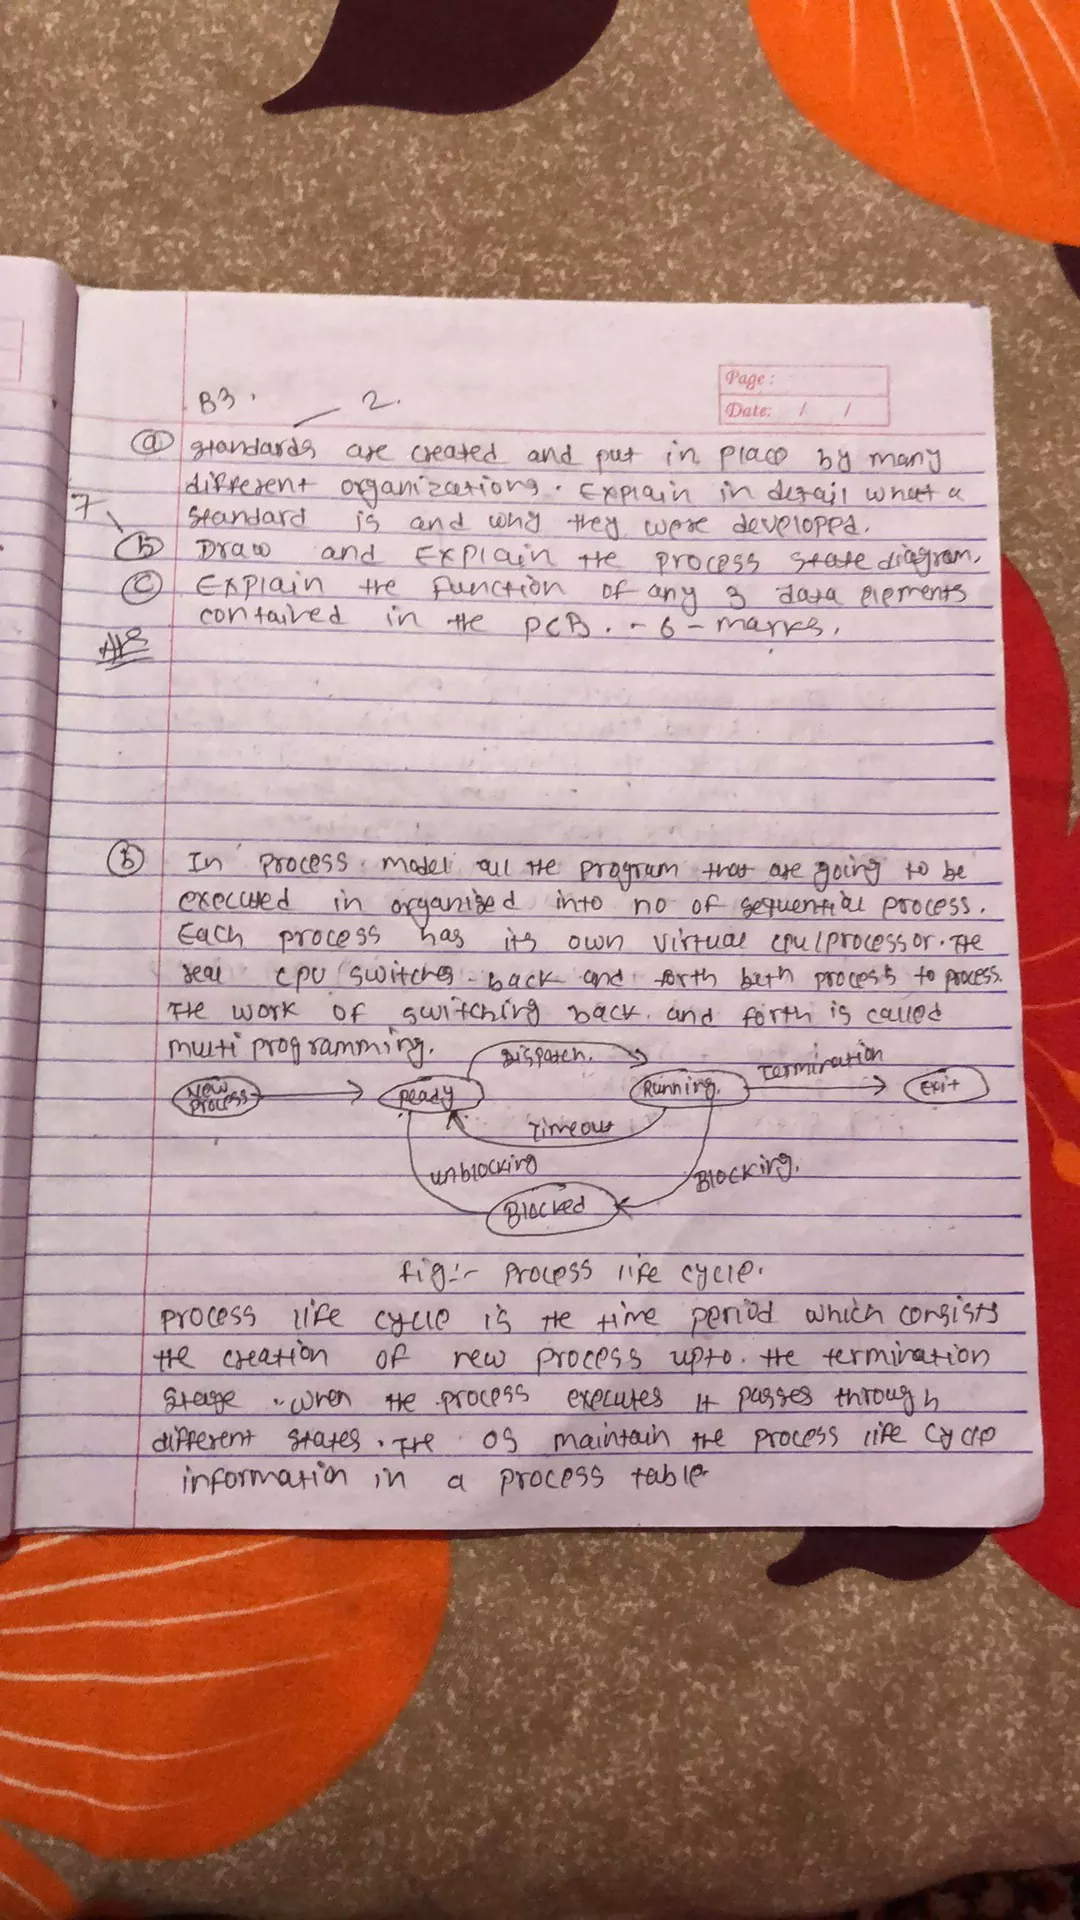 Page :
Date: / /
B3. 2.
(a) Standards are created and put in place by many
different organizations. Explain in detail what a
7 standard is and why they were developed.
(b) Draw and Explain the process state diagram.
(c) Explain the function of any 3 data elements
contained in the PCB. - 6 - marks.
Ans
(b) In process model all the program that are going to be
executed in organized into no of sequential process.
Each process has its own virtual cpu/processor. The
real cpu switches back and forth beth process to process.
The work of switching back and forth is called
multi programming.
Dispatch.
Termination
New
Process
Ready
Running.
Exit
Timeout
unblocking
Blocking.
Blocked
fig:- Process life cycle.
process life cycle is the time period which consists
the creation of new process upto. the termination
stage. when the process executes it passes through
different states. The OS maintain the process life cycle
information in a process table